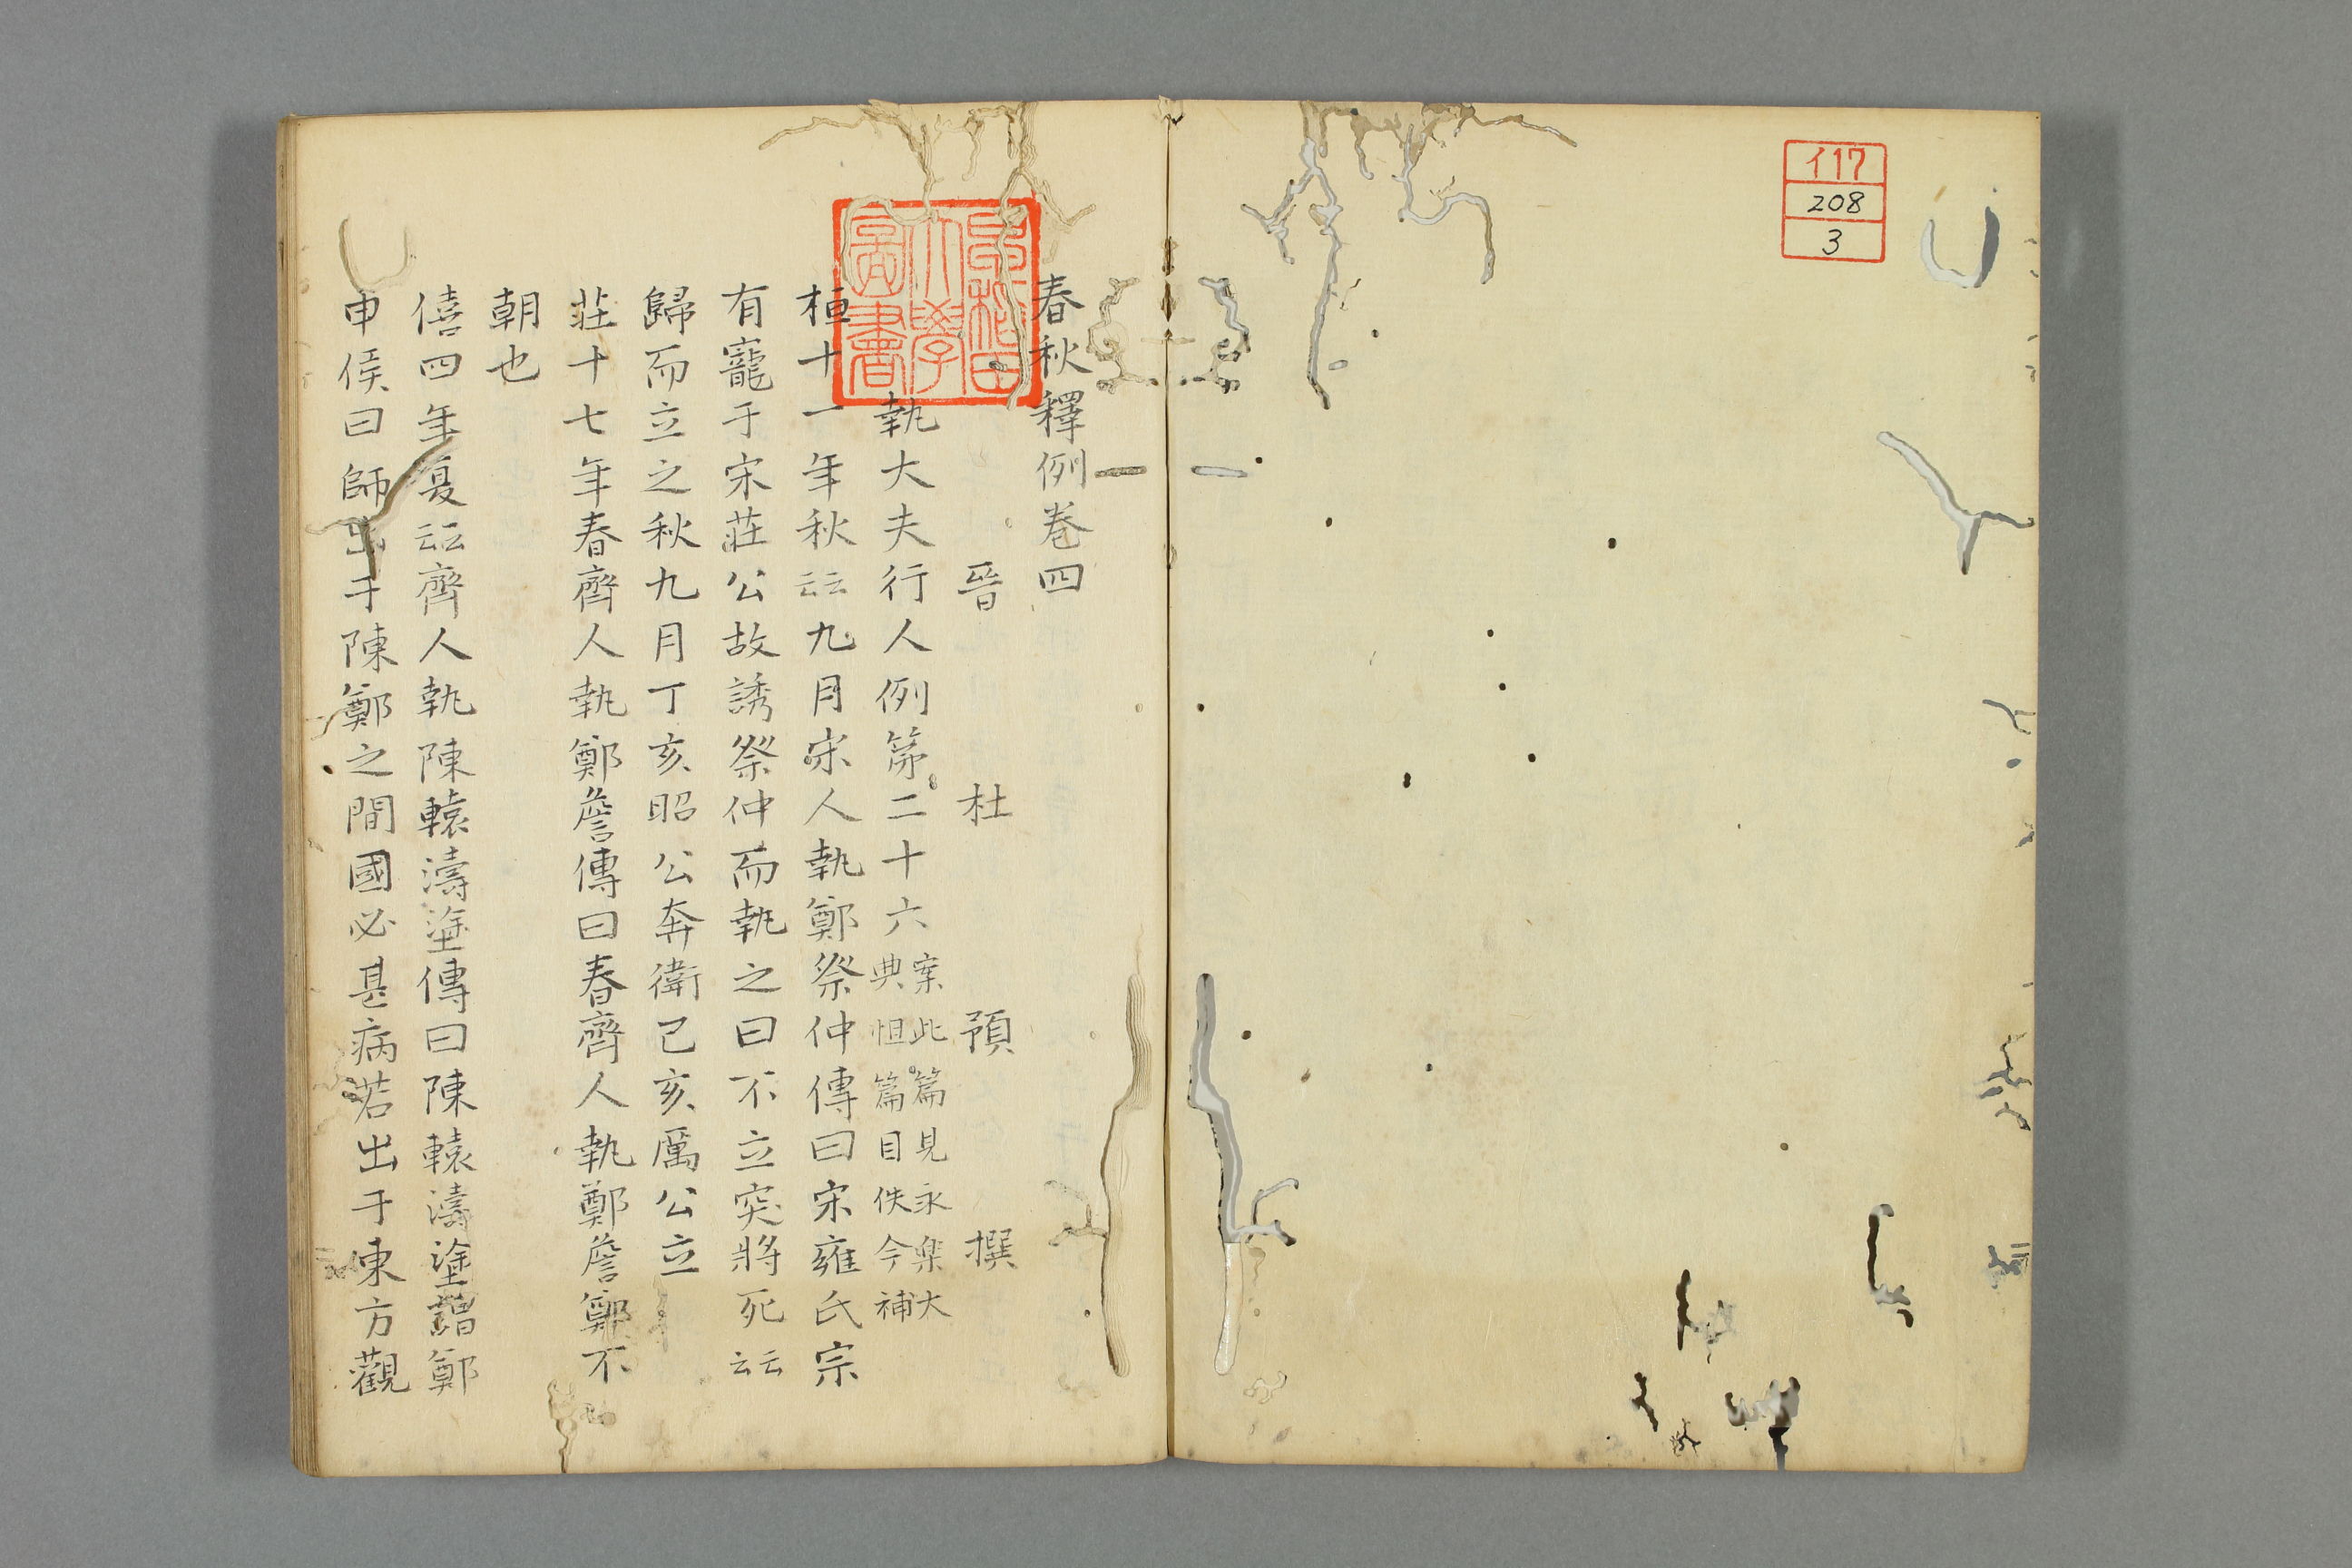 イ17
208
3
早稲田大學圖書
春秋釋例卷四
晉 杜 預 撰
執大夫行人例第二十六 案此篇見永楽大典怛篇目佚今補
桓十一年秋云云九月宋人執鄭祭仲傳曰宋雍氏宗
有寵于宋莊公故誘祭仲而執之曰不立突將死云云
歸而立之秋九月丁亥昭公奔衛己亥厲公立
莊十七年春齊人執鄭詹傳曰春齊人執鄭詹鄭不
朝也
僖四年夏云云齊人執陳轅濤塗傳曰陳轅濤塗謂鄭
申侯曰師出于陳鄭之間國必甚病若出于東方觀